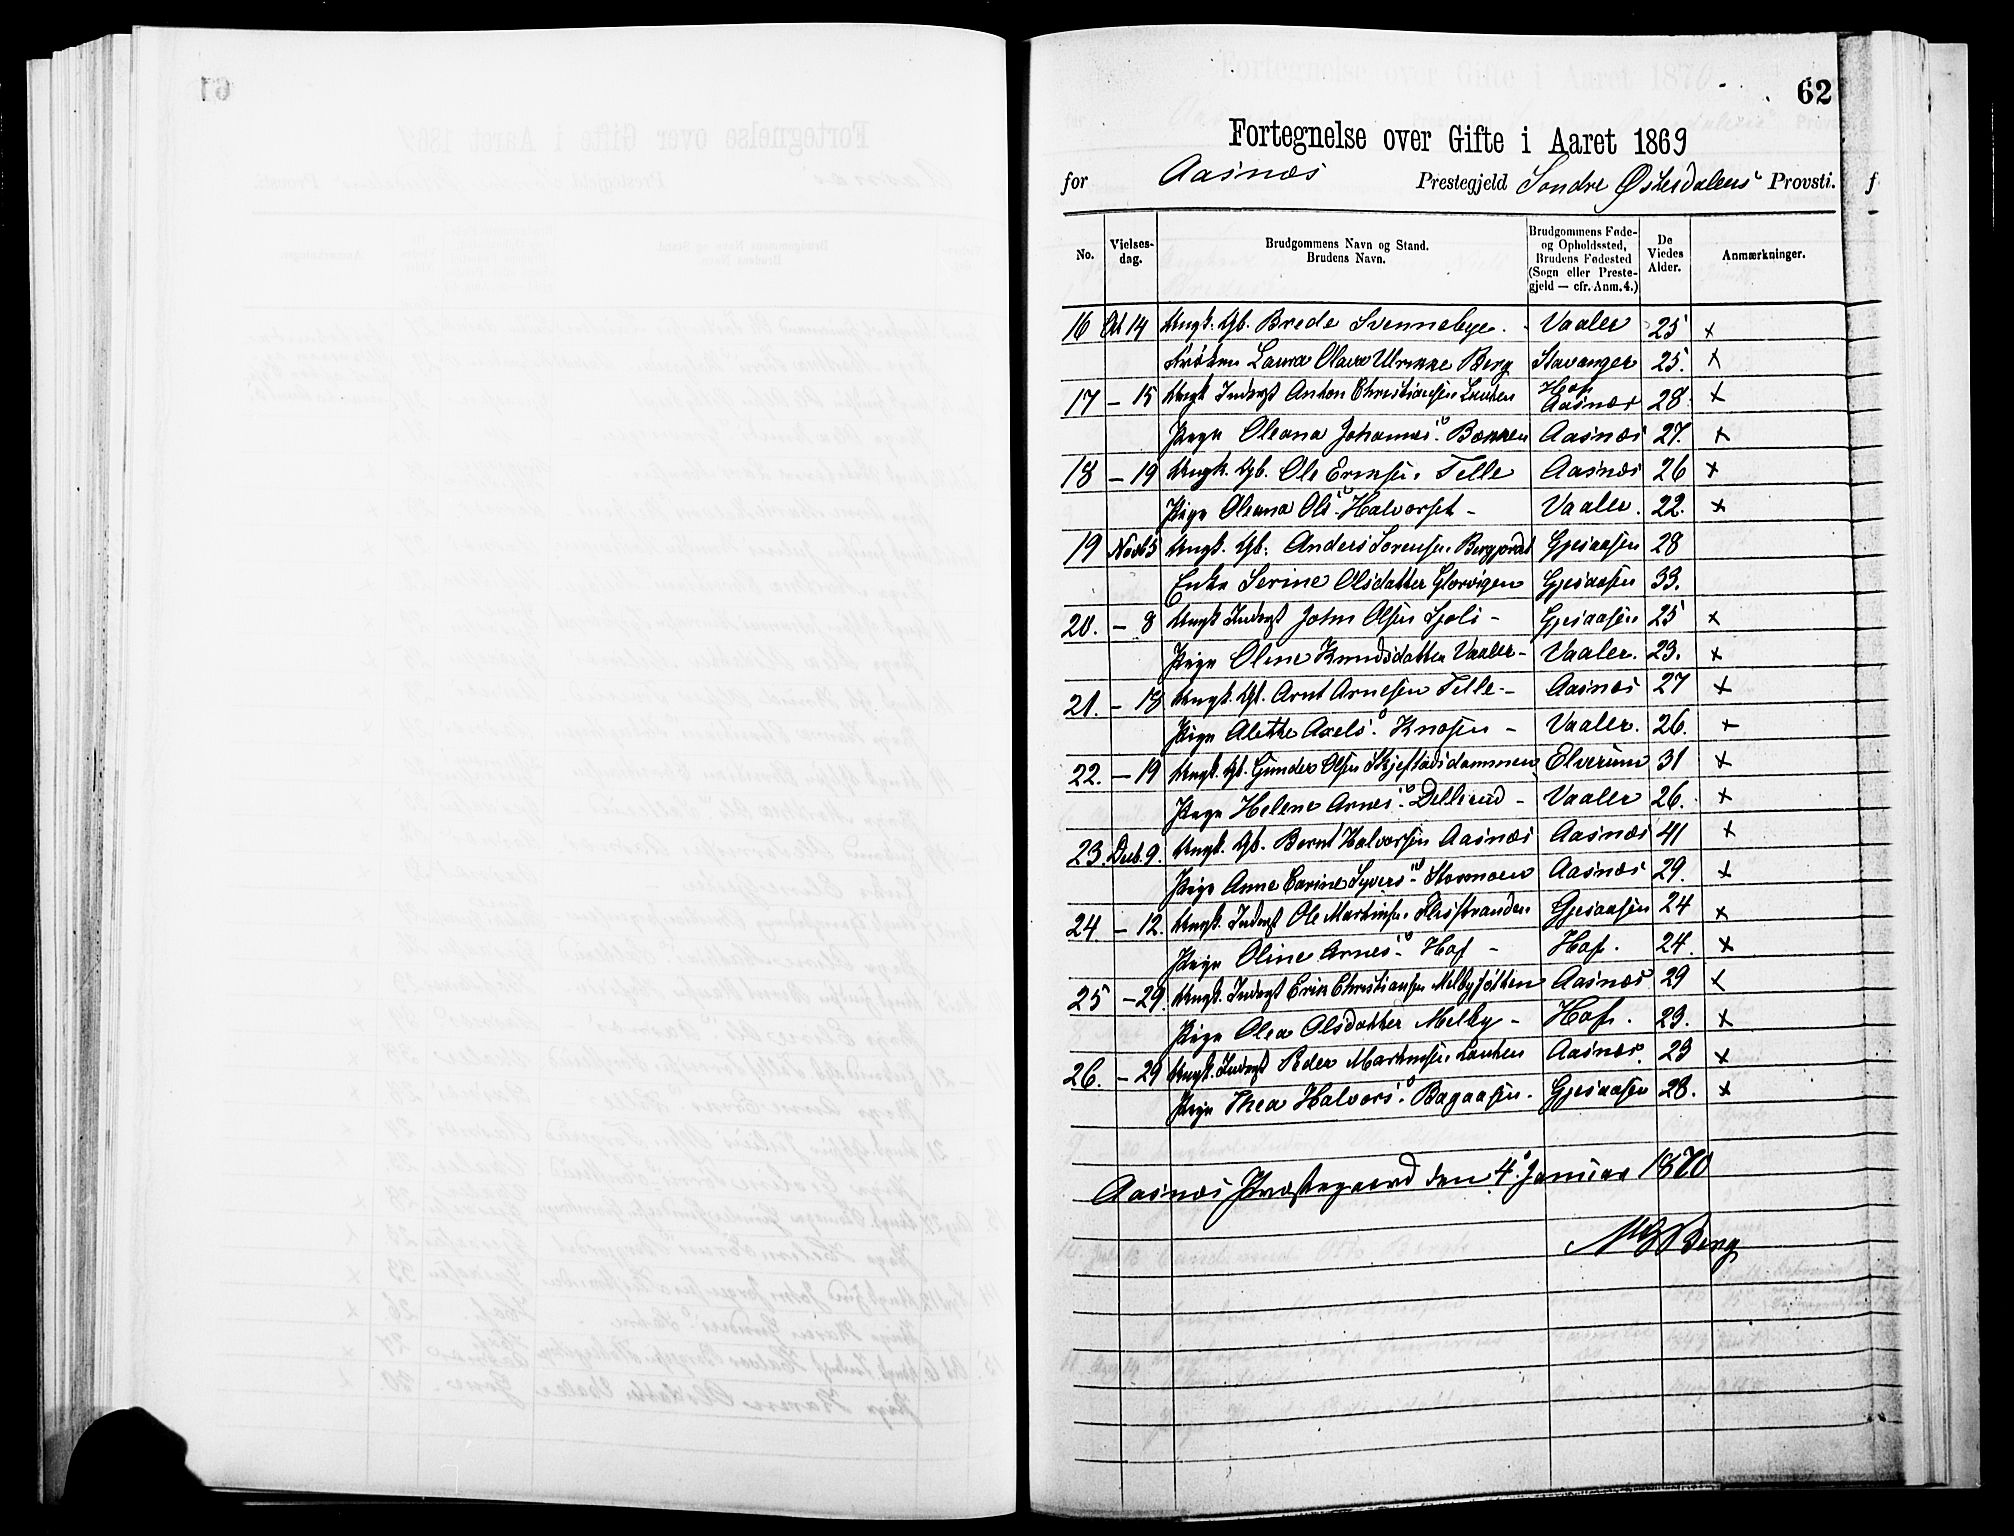 62
Fortegnelse over Gifte i Aaret 1869
for Aasnæs Prestegjeld Søndre Østerdalens Provsti.
No. Vielses-dag. Brudgommens Navn og Stand. Brudens Navn. Brudgommens Føde- og Opholdssted, Brudens Fødested (Sogn eller Preste-gjeld — cfr. Anm. 4.) De Viedes Alder. Anmærkninger.
16 Oct 14 Ungk. Gb. Brede Svennebye. Vaaler 25 x
Frøken Laura Olava Ulrikke Berg Stavanger 25. x
17 - 15 Ungk Inderst Anton Christiansen Lauten Hof Aasnæs 28 x
Pige Oleana Johannesd. Bakken Aasnæs 27. x
18 - 19 Ungk. Gb. Ole Eriksen Telle Aasnæs 26 x
Pige Oleana Olsd. Halvorset - Vaaler. 22. x
19 Novb 5 Ungk. Gb. Anders Sørensen Berggrdet Gjesaasen 28
Enke Serine Olsdatter Glorvigen Gjesaasen 33.
20. - 8 Ungk Inderst John Olsen Sjoli - Gjesaasen 25 x
Pige Oline Knudsdatter Vaaler - Vaaler. 23. x
21. - 18 Ungk. Gb. Arnt Arnesen Telle - Aasnæs 27 x
Pige Alethe Axelsd. Knasen - Vaaler. 26. x
22. - 19 Ungk. Gb. Gunder Olsen Skjefstadsdammen Elverum 31 x
Pige Helene Arnesd. Dellerud - Vaaler 26. x
23. Decb. 9. Ungk. Gb. Bernt Halvorsen Aasnæs Aasnæs 41 x
Pige Anne Carine Syversd. Stormoen Aasnæs 29. x
24. - 12. Ungk. Inderst Ole Martinsen Flisstranden Gjesaasen 24 x
Pige Oline Arnesd. Hof - Hof. 24. x
25 - 29. Ungk. Inderst Erik Christiansen Melbyfølten Aasnæs 29 x
Pige Olea Olsdatter Melby - Hof. 23. x
26. - 29 Ungk. Inderst Peder Martinsen Lauten Aasnæs. 23 x
Pige Thea Halvorsd. Bagaasen. Gjesaasen 28. x
Aasnæs Præstegaard den 4. Januar 1870
Berg